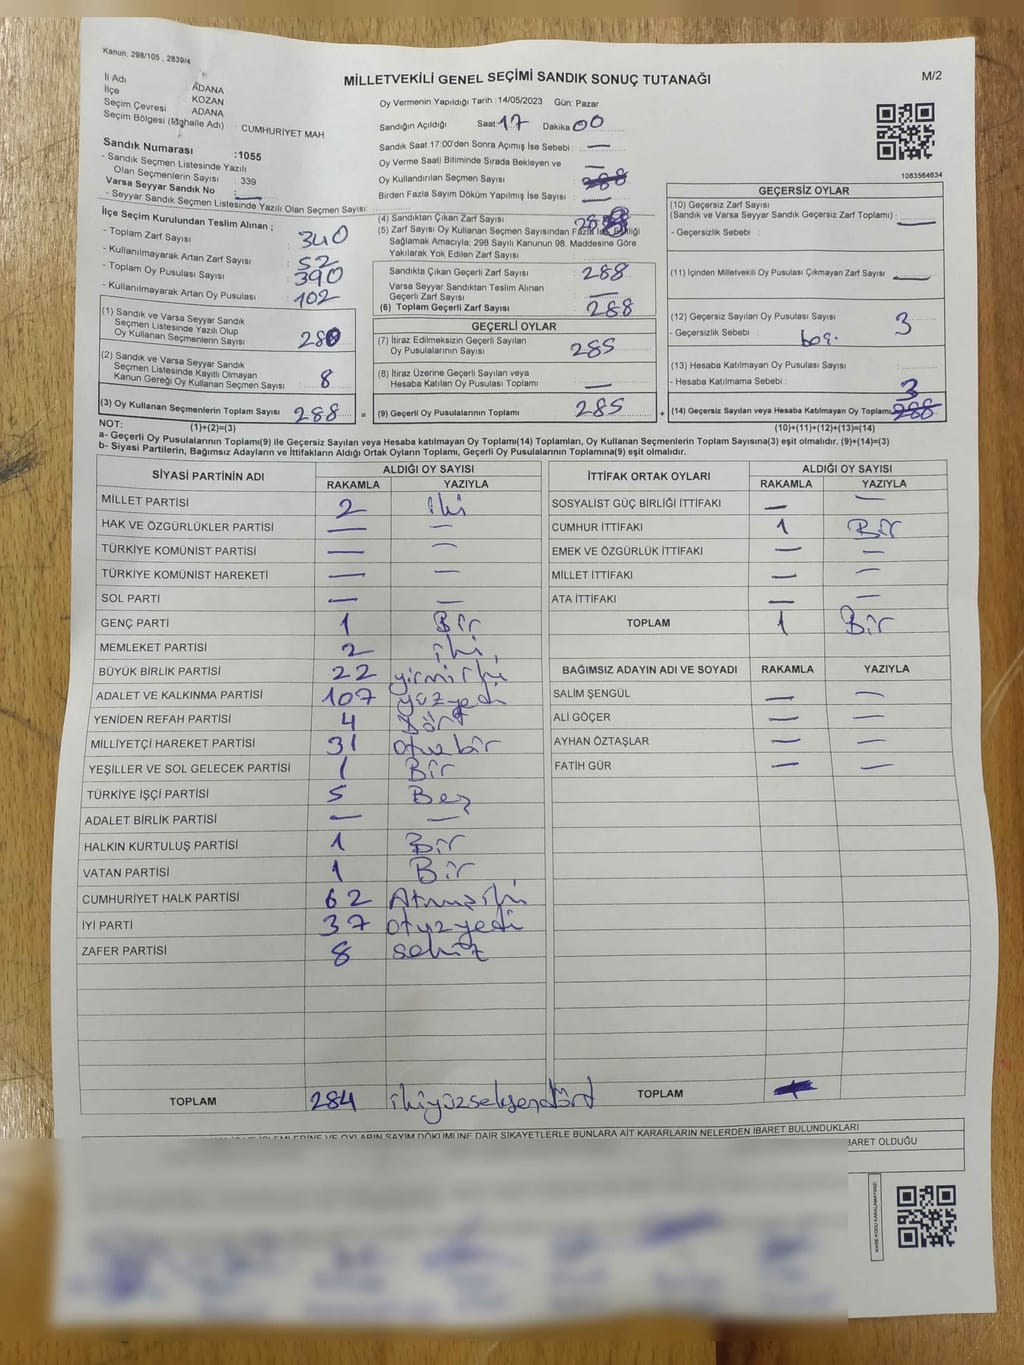 Kanun, 298/105 , 2839/4
MİLLETVEKİLİ GENEL SEÇİMİ SANDIK SONUÇ TUTANAĞI
M/2
İl Adı ADANA
İlçe KOZAN
Seçim Çevresi ADANA
Seçim Bölgesi (Mahalle Adı) : CUMHURİYET MAH
Sandık Numarası :1055
- Sandık Seçmen Listesinde Yazılı
Olan Seçmenlerin Sayısı : 339
Varsa Seyyar Sandık No : —
- Seyyar Sandık Seçmen Listesinde Yazılı Olan Seçmen Sayısı:
İlçe Seçim Kurulundan Teslim Alınan ;
- Toplam Zarf Sayısı : 340
- Kullanılmayarak Artan Zarf Sayısı : 52
- Toplam Oy Pusulası Sayısı : 390
- Kullanılmayarak Artan Oy Pusulası : 102
(1) Sandık ve Varsa Seyyar Sandık
Seçmen Listesinde Yazılı Olup
Oy Kullanan Seçmenlerin Sayısı : 280
(2) Sandık ve Varsa Seyyar Sandık
Seçmen Listesinde Kayıtlı Olmayan
Kanun Gereği Oy Kullanan Seçmen Sayısı : 8
(3) Oy Kullanan Seçmenlerin Toplam Sayısı : 288
(1)+(2)=(3)
Oy Vermenin Yapıldığı Tarih :14/05/2023 Gün: Pazar
Sandığın Açıldığı Saat: 17 Dakika: 00
Sandık Saat 17:00'den Sonra Açımış İse Sebebi : —
Oy Verme Saati Bitiminde Sırada Bekleyen ve
Oy Kullandırılan Seçmen Sayısı : —
Birden Fazla Sayım Döküm Yapılmış İse Sayısı : —
(4) Sandıktan Çıkan Zarf Sayısı : 288
(5) Zarf Sayısı Oy Kullanan Seçmen Sayısından Fazla İse
Sağlamak Amacıyla; 298 Sayılı Kanunun 98. Maddesine Göre
Yakılarak Yok Edilen Zarf Sayısı :
Sandıkta Çıkan Geçerli Zarf Sayısı : 288
Varsa Seyyar Sandıktan Teslim Alınan
Geçerli Zarf Sayısı : —
(6) Toplam Geçerli Zarf Sayısı : 288
GEÇERLİ OYLAR
(7) İtiraz Edilmeksizin Geçerli Sayılan
Oy Pusulalarının Sayısı : 285
(8) İtiraz Üzerine Geçerli Sayılan veya
Hesaba Katılan Oy Pusulası Toplamı : —
= (9) Geçerli Oy Pusulalarının Toplamı : 285
1083564634
GEÇERSİZ OYLAR
(10) Geçersiz Zarf Sayısı
(Sandık ve Varsa Seyyar Sandık Geçersiz Zarf Toplamı) : —
- Geçersizlik Sebebi :
(11) İçinden Milletvekili Oy Pusulası Çıkmayan Zarf Sayısı : —
(12) Geçersiz Sayılan Oy Pusulası Sayısı : 3
- Geçersizlik Sebebi : boş.
(13) Hesaba Katılmayan Oy Pusulası Sayısı :
- Hesaba Katılmama Sebebi : 3
+ (14) Geçersiz Sayılan veya Hesaba Katılmayan Oy Toplamı 288
(10)+(11)+(12)+(13)=(14)
NOT:
a- Geçerli Oy Pusulalarının Toplamı(9) ile Geçersiz Sayılan veya Hesaba katılmayan Oy Toplamı(14) Toplamları, Oy Kullanan Seçmenlerin Toplam Sayısına(3) eşit olmalıdır. (9)+(14)=(3)
b- Siyasi Partilerin, Bağımsız Adayların ve İttifakların Aldığı Ortak Oyların Toplamı, Geçerli Oy Pusulalarının Toplamına(9) eşit olmalıdır.
SİYASİ PARTİNİN ADI ALDIĞI OY SAYISI
RAKAMLA YAZIYLA
MİLLET PARTİSİ 2 iki
HAK VE ÖZGÜRLÜKLER PARTİSİ — —
TÜRKİYE KOMÜNİST PARTİSİ — —
TÜRKİYE KOMÜNİST HAREKETİ — —
SOL PARTİ — —
GENÇ PARTİ 1 Bir
MEMLEKET PARTİSİ 2 iki
BÜYÜK BİRLİK PARTİSİ 22 yirmi iki
ADALET VE KALKINMA PARTİSİ 107 yüzyedi
YENİDEN REFAH PARTİSİ 4 Dört
MİLLİYETÇİ HAREKET PARTİSİ 31 otuzbir
YEŞİLLER VE SOL GELECEK PARTİSİ 1 Bir
TÜRKİYE İŞÇİ PARTİSİ 5 Beş
ADALET BİRLİK PARTİSİ — —
HALKIN KURTULUŞ PARTİSİ 1 Bir
VATAN PARTİSİ 1 Bir
CUMHURİYET HALK PARTİSİ 62 Atmışiki
İYİ PARTİ 37 otuzyedi
ZAFER PARTİSİ 8 sekiz
TOPLAM 284 ikiyüzseksendört
İTTİFAK ORTAK OYLARI ALDIĞI OY SAYISI
RAKAMLA YAZIYLA
SOSYALİST GÜÇ BİRLİĞİ İTTİFAKI — —
CUMHUR İTTİFAKI 1 Bir
EMEK VE ÖZGÜRLÜK İTTİFAKI — —
MİLLET İTTİFAKI — —
ATA İTTİFAKI — —
TOPLAM 1 Bir
BAĞIMSIZ ADAYIN ADI VE SOYADI RAKAMLA YAZIYLA
SALİM ŞENGÜL — —
ALİ GÖÇER — —
AYHAN ÖZTAŞLAR — —
FATİH GÜR — —
TOPLAM
OYLARIN SAYIM DÖKÜMÜNE DAİR ŞİKAYETLERLE BUNLARA AİT KARARLARIN NELERDEN İBARET BULUNDUKLARI
İBARET OLDUĞU
KARE KODU KARALAMAYINIZ!